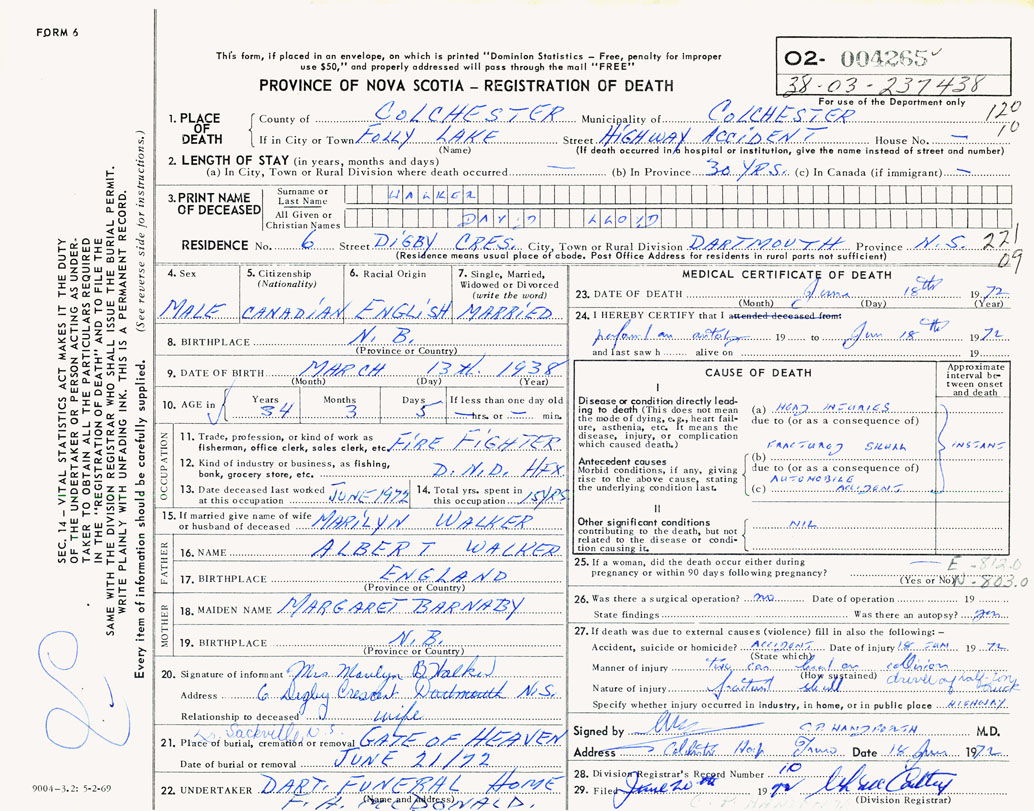 FORM 6
This form, if placed in an envelope, on which is printed "Dominion Statistics – Free, penalty for improper
use $50," and properly addressed will pass through the mail "FREE"
PROVINCE OF NOVA SCOTIA – REGISTRATION OF DEATH
O2- 004265
38-03-237438
For use of the Department only
120
10
1. PLACE OF DEATH
County of COLCHESTER Municipality of COLCHESTER
If in City or Town FOLLY LAKE Street HIGHWAY ACCIDENT House No. –
(Name) (If death occurred in a hospital or institution, give the name instead of street and number)
2. LENGTH OF STAY (in years, months and days)
(a) In City, Town or Rural Division where death occurred — (b) In Province 30 YRS. (c) In Canada (if immigrant) –
3. PRINT NAME OF DECEASED
Surname or Last Name WALKER
All Given or Christian Names DAVID LLOYD
RESIDENCE No. 6 Street DIGBY CRES. City, Town or Rural Division DARTMOUTH Province N.S.
221
09
(Residence means usual place of abode. Post Office Address for residents in rural parts not sufficient)
4. Sex
MALE
5. Citizenship
(Nationality)
CANADIAN
6. Racial Origin
ENGLISH
7. Single, Married,
Widowed or Divorced
(write the word)
MARRIED
8. BIRTHPLACE N.B.
(Province or Country)
9. DATE OF BIRTH MARCH 13th. 1938
(Month) (Day) (Year)
10. AGE in
Years 34
Months 3
Days 5
If less than one day old
— hrs. or — min.
OCCUPATION
11. Trade, profession, or kind of work as
fishermen, office clerk, sales clerk, etc. FIRE FIGHTER
12. Kind of industry or business, as fishing,
bank, grocery store, etc. D.N.D. HFX.
13. Date deceased last worked
at this occupation JUNE 1972
14. Total yrs. spent in
this occupation 15 YRS
15. If married give name of wife
or husband of deceased MARILYN WALKER
FATHER
16. NAME ALBERT WALKER
17. BIRTHPLACE ENGLAND
(Province or Country)
MOTHER
18. MAIDEN NAME MARGARET BARNABY
19. BIRTHPLACE N.B.
(Province or Country)
20. Signature of informant Mrs Marilyn B Walker
Address 6 Digby Crescent Dartmouth N.S.
Relationship to deceased wife
Lr. Sackville, N.S.
21. Place of burial, cremation or removal GATE OF HEAVEN
Date of burial or removal JUNE 21/72
22. UNDERTAKER DART. FUNERAL HOME
(Name and address)
MEDICAL CERTIFICATE OF DEATH
23. DATE OF DEATH June 18th 1972
(Month) (Day) (Year)
24. I HEREBY CERTIFY that I attended deceased from:
perform an autopsy 19 to Jun 18th 1972
and last saw h alive on 19
CAUSE OF DEATH
Approximate
interval be-
tween onset
and death
I
Disease or condition directly lead-
ing to death (This does not mean
the mode of dying, e.g., heart fail-
ure, asthenia, etc. It means the
disease, injury, or complication
which caused death.)
(a) HEAD INJURIES
due to (or as a consequence of)
FRACTURED SKULL
INSTANT
Antecedent causes
Morbid conditions, if any, giving
rise to the above cause, stating
the underlying condition last.
(b)
due to (or as a consequence of)
AUTOMOBILE
(c) ACCIDENT
II
Other significant conditions
contributing to the death, but not
related to the disease or condi-
tion causing it.
NIL
25. If a woman, did the death occur either during
pregnancy or within 90 days following pregnancy? —
(Yes or No)
E -812.0
N -803.0
26. Was there a surgical operation? no Date of operation 19
State findings Was there an autopsy? yes
27. If death was due to external causes (violence) fill in also the following: –
Accident, suicide or homicide? ACCIDENT Date of injury 18 JUN 1972
(State which)
Manner of injury two car head on collision
(How sustained) driver of half-ton truck
Nature of injury fractured skull
Specify whether injury occurred in industry, in home, or in public place HIGHWAY
Signed by M.D.
Address Colchester Hosp Truro Date 18 Jun 1972
28. Division Registrar's Record Number 110
29. Filed June 20th 1972
(Division Registrar)
SEC. 14 – VITAL STATISTICS ACT MAKES IT THE DUTY
OF THE UNDERTAKER OR PERSON ACTING AS UNDER-
TAKER TO OBTAIN ALL THE PARTICULARS REQUIRED
IN THE "REGISTRATION OF DEATH" AND TO FILE THE
SAME WITH THE DIVISION REGISTRAR WHO SHALL ISSUE THE BURIAL PERMIT.
WRITE PLAINLY WITH UNFADING INK. THIS IS A PERMANENT RECORD.
Every item of information should be carefully supplied. (See reverse side for instructions.)
9004-3.2: 5-2-69